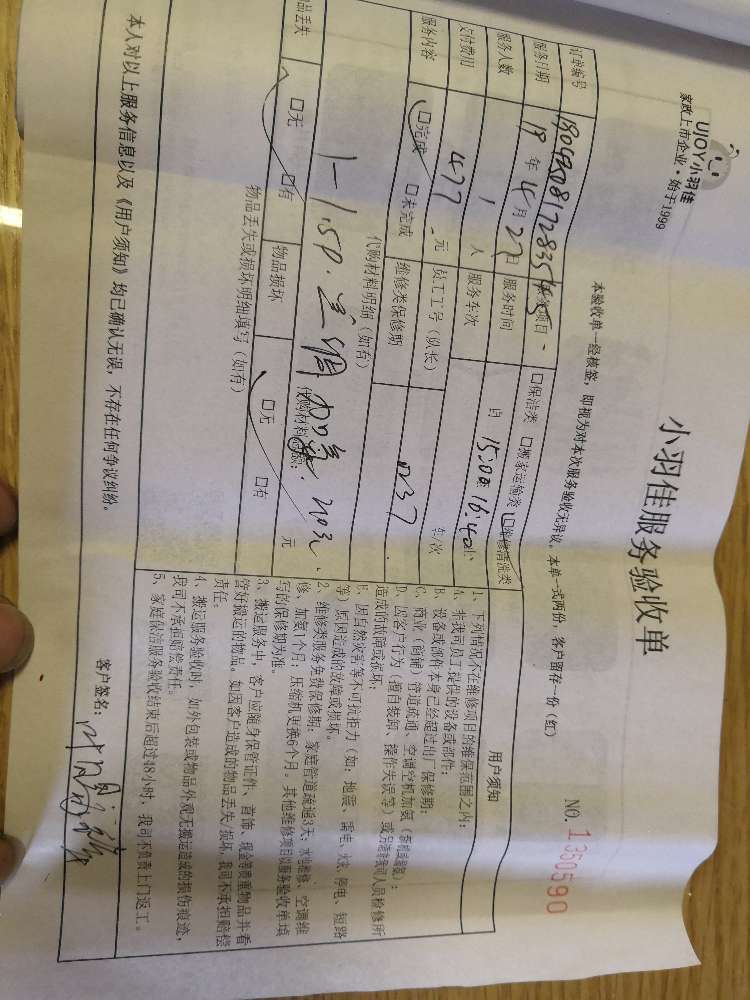 UJOY小羽佳
家政上市企业·始于1999
小羽佳服务验收单
NO. 1350590
本验收单一经核签，即视为对本次服务验收无异议。本单一式两份，客户留存一份（红）
订单编号
服务项目
□保洁类 □搬家运输类 □维修清洗类
服务日期 18 年 4 月 27 日 服务时间 自 15:00至16:40止
服务人数 1 人 服务车次 车/次
支付费用 477 元 员工工号（队长） 0237
服务内容 □完成 □未完成 维修类保修期
代购材料明细（如有）
代购材料总额： 元
物品丢失 □无 □有 物品损坏 □无 □有
物品丢失或损坏明细填写（如有）
用户须知
1、下列情况不在维修项目的维保范围之内：
A、非我司员工提供的设备或部件；
B、设备或部件本身已经超过出厂保修期；
C、商业（商铺）管道疏通、空调空机加氨
D、因客户行为（擅自装卸、操作失误等）或另请非我司人员检修所
造成的故障或损坏；
E、因自然灾害等不可抗拒力（如：地震、雷电、火灾、停电、短路
等）原因造成的故障或损坏。
2、维修类服务免费保修期：家庭管道疏通3天，水电维修、空调维
修、加氨1个月，压缩机更换6个月。其他维修项目以服务验收单填
写的保修期为准。
3、搬运服务中，客户应随身保管证件、首饰、现金等贵重物品并看
管好搬运的物品。如因客户造成的物品丢失/损坏，我司不承担赔偿
责任。
4、搬运服务验收时，如外包装或物品外观无搬运造成的损伤痕迹，
我司不承担赔偿责任。
5、家庭保洁服务验收结束后超过48小时，我司不负责上门返工。
本人对以上服务信息以及《用户须知》均已确认无误，不存在任何争议纠纷。
客户签名：